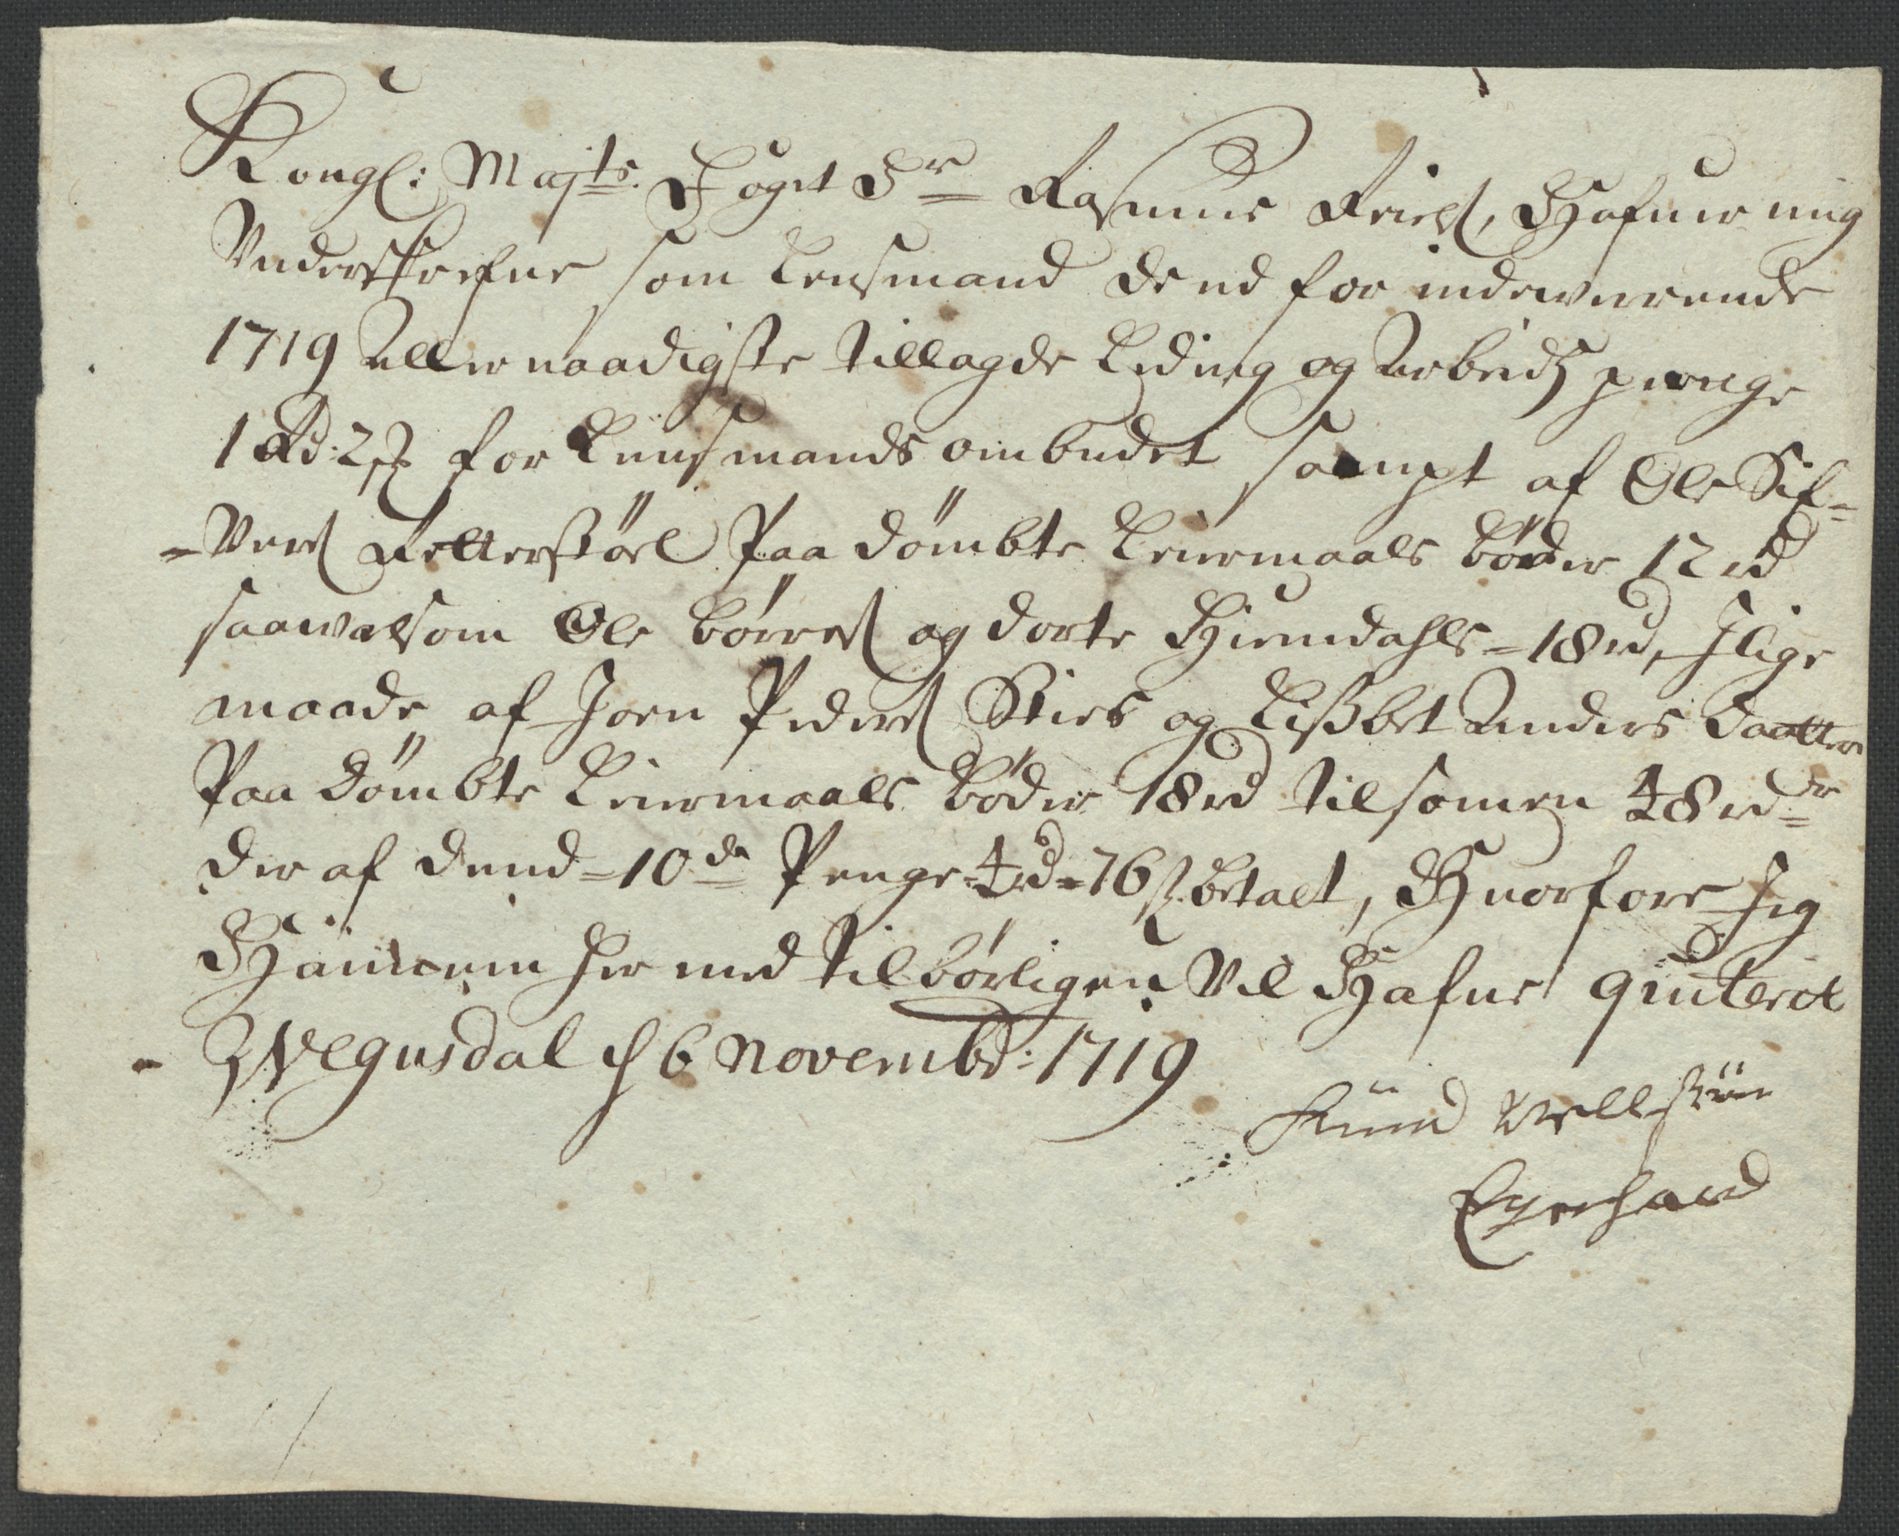 Kongl: Majts. Foget Sr Rasmus Friels, Hafuer mig
Underskrefne som Lensmand dend for indewerende
1719 Allernaadigste tillagde Leding og Arbeids penge
1 Rd: 2 s for Lensmands ombudet sampt af Ole Sif-
=Vers paa dömbte Leiermaals böder 12 rd
saawelsom Ole Börres og Dorte Hiemdahls = 18 rd, Jlige
maade af Joen Peders Sties og Lissbet Anders Daatter
Paa dömbte Leiermaals böder 18 rd tilsamen 48 rdr
der af dend = 10de Penge 4 rd = 76 s betalt, Huorfore Jeg
Hannem her med tilbörligen Vil Hafue quiterit
Wegusdal d 6 Novembr: 1719
Knud
Egenhand